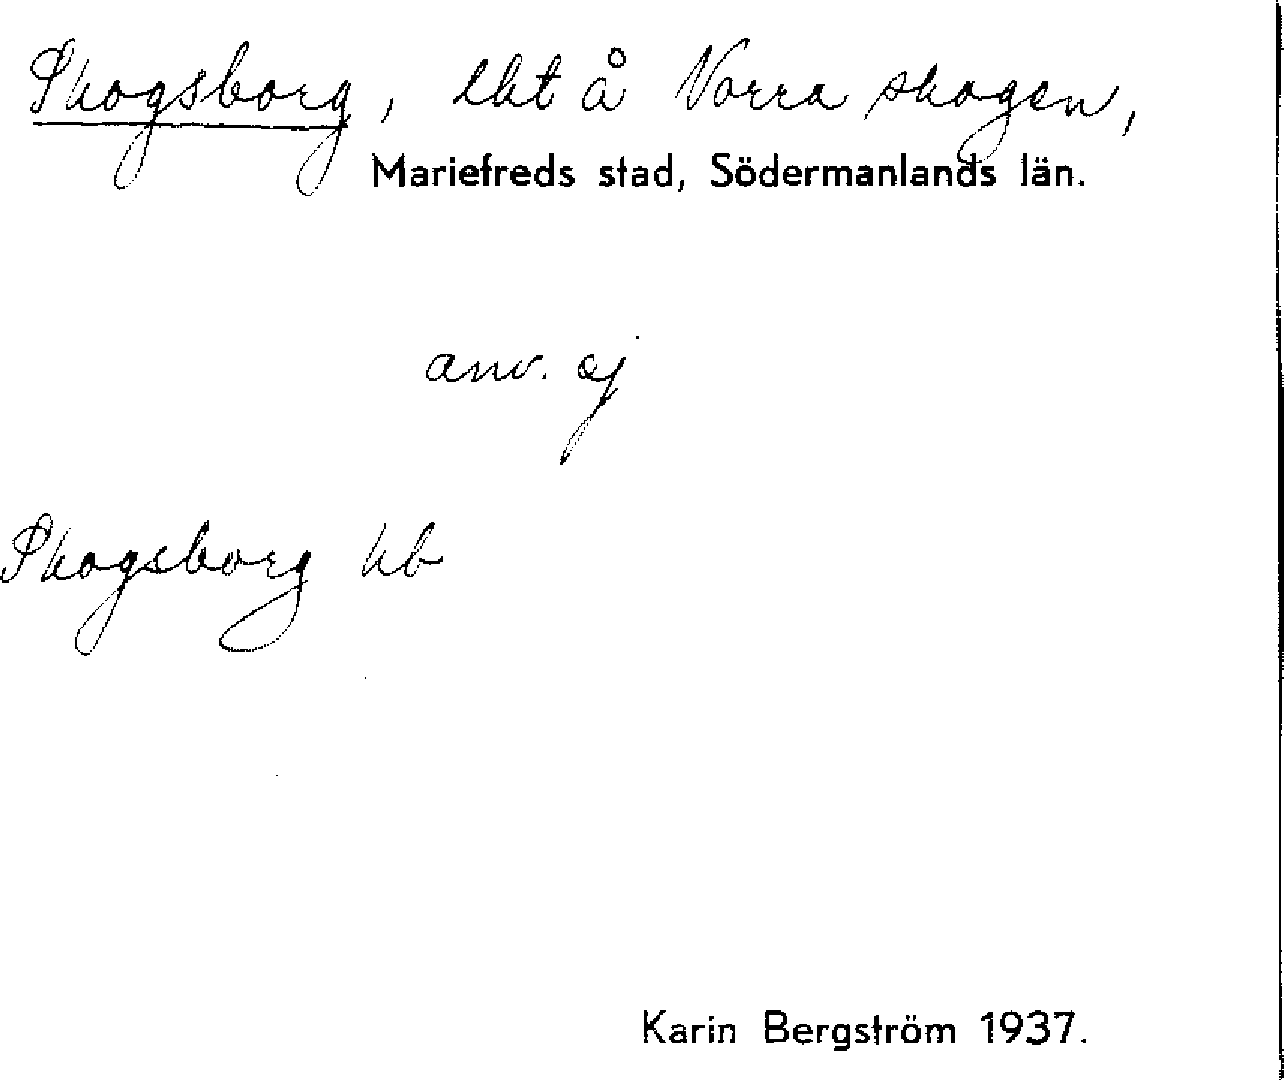 Skogsborg, lht å Norra skogen,
Mariefreds stad, Södermanlands län.
anv. ej
Skogsborg hb
Karin Bergström 1937.